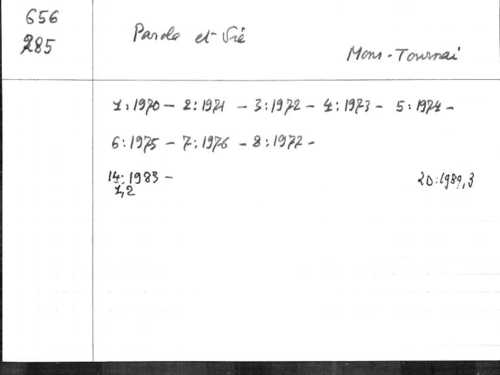 656
285
Parole et Vie
Mons-Tournai
1:1970 - 2:1971 - 3:1972 - 4:1973 - 5:1974 -
6:1975 - 7:1976 - 8:1977 -
14:1983 -
1,2
20:1989,3